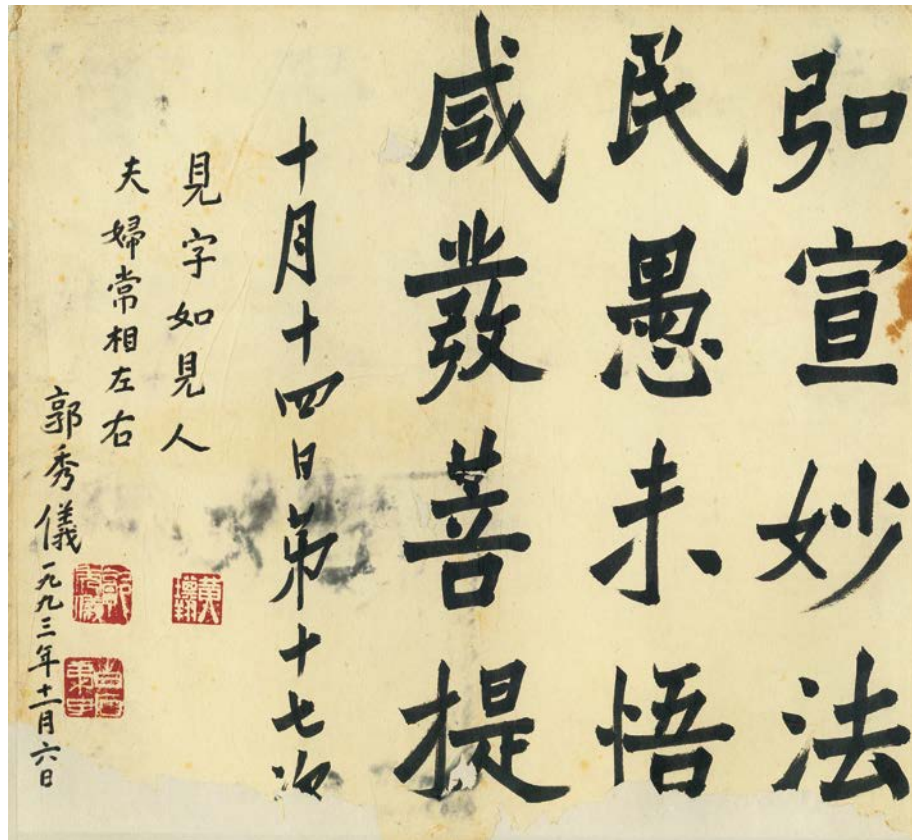 弘宣妙法
民愚未悟
咸發菩提
十月十四日第十七次
見字如見人
夫婦常相左右
郭秀儀一九九三年十一月六日
黃
郭秀儀